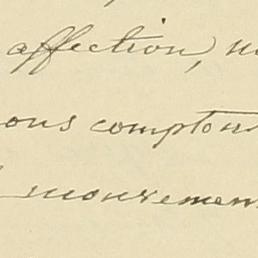 affection, n
ous comptons
mouvement